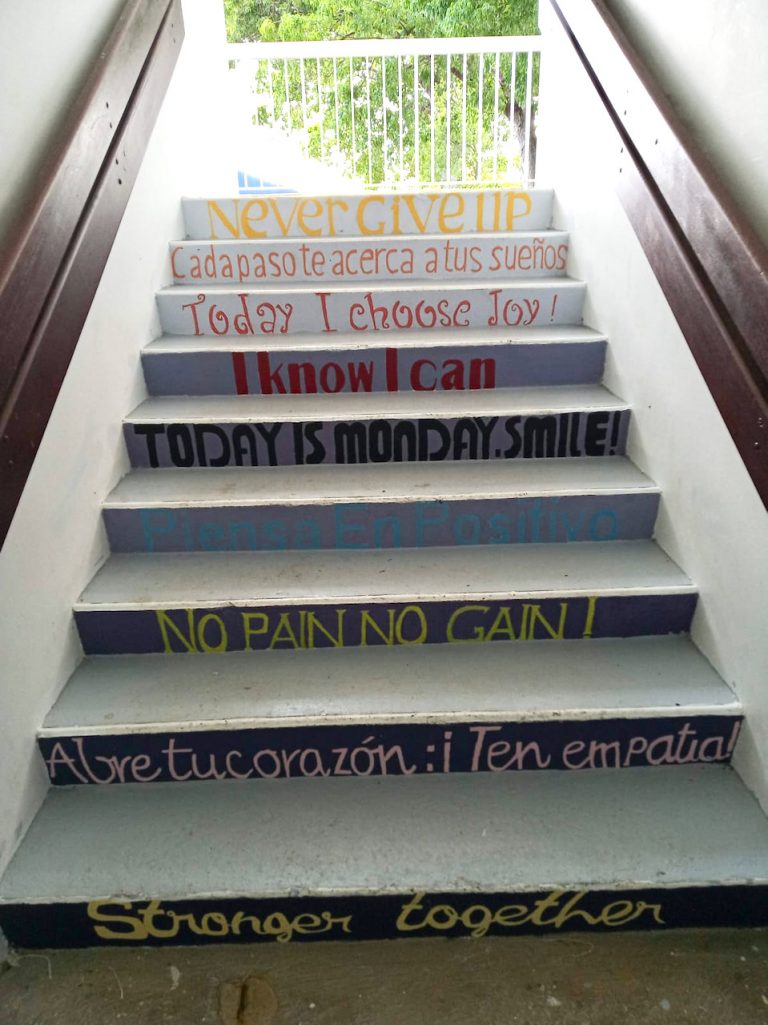 Never Give Up
Cada paso te acerca a tus sueños
Today I choose Joy!
I know I can
TODAY IS MONDAY.SMILE!
Piensa En Positivo
NO PAIN NO GAIN!
Abre tu corazón:¡Ten empatia!
Stronger together